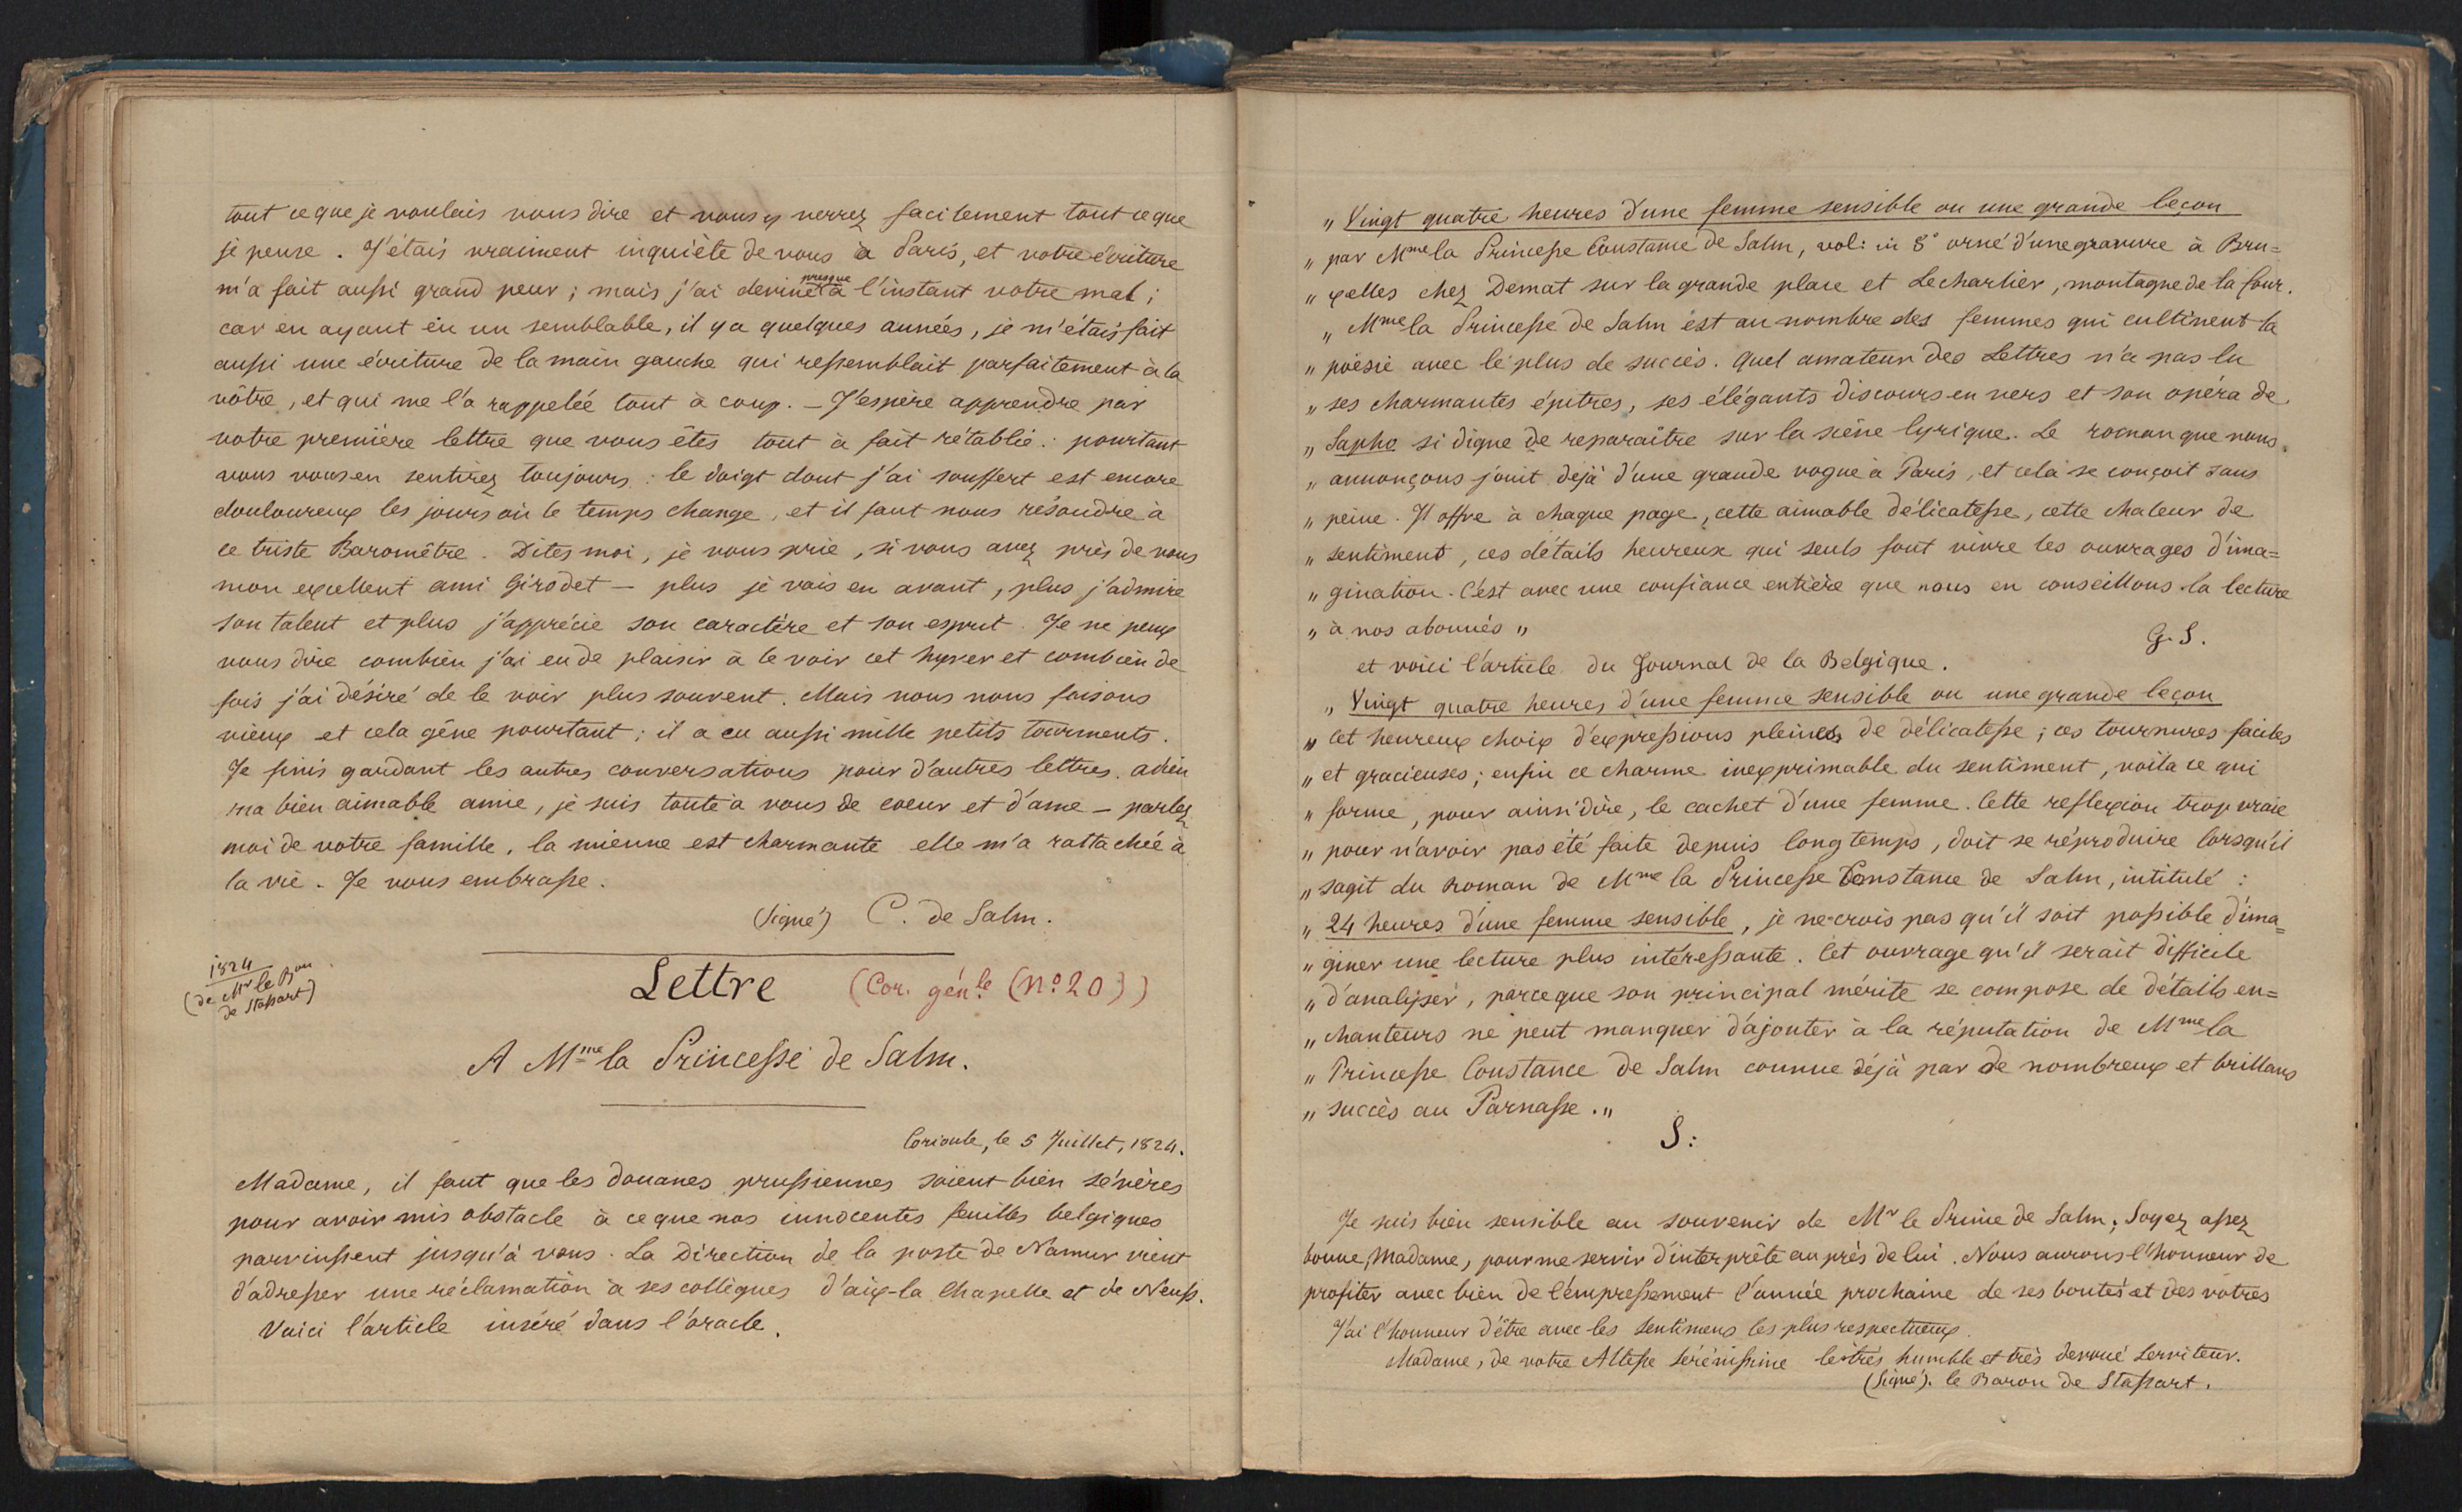 tout ce que je voulais vous dire et vous y verrez facilement tout ce que
je pense. J'étais vraiment inquiète de vous à Paris, et votre écriture
m'a fait aussi grand peur; mais j'ai deviné presque à l'instant votre mal;
car en ayant eu un semblable, il y a quelques années, je m'étais fait
aussi une écriture de la main gauche qui ressemblait parfaitement à la
vôtre, et qui me l'a rappelée tout à coup. – J'espère apprendre par
votre première lettre que vous êtes tout à fait rétablie: pourtant
vous vous en sentirez toujours: le doigt dont j'ai souffert est encore
douloureux les jours où le temps change, et il faut nous résoudre à
ce triste Baromêtre. Dites moi, je vous prie, si vous avez près de vous
mon excellent ami Girodet – plus je vais en avant, plus j'admire
son talent et plus j'apprécie son caractère et son esprit. Je ne peux
vous dire combien j'ai eu de plaisir à le voir cet hyver et combien de
fois j'ai désiré de le voir plus souvent. Mais nous nous faisons
vieux et cela gêne pourtant; il a eu aussi mille petits tourments.
Je finis gardant les autres conversations pour d'autres lettres. adieu
ma bien aimable amie, je suis toute à vous de coeur et d'ame – parlez
moi de votre famille, la mienne est charmante elle m'a rattachée à
la vie. Je vous embrasse.
(signé) C. de Salm.
1824
(de Mr le Bon
de Stassart)
Lettre (Cor. génle (No 20))
A Mme la Princesse de Salm.
Corioule, le 5 Juillet, 1824.
Madame, il faut que les douanes prussiennes soient bien sévères
pour avoir mis obstacle à ce que nos innocentes feuilles belgiques
parvinssent jusqu'à vous. La Direction de la poste de Namur vient
d'adresser une réclamation à ses collègues d'aix-la Chapelle et de Neuss.
Voici l'article inséré dans l'oracle.
„ Vingt quatre heures d'une femme sensible ou une grande leçon
„ par Mme la Princesse Constance de Salm, vol: in 8° orné d'une gravure à Bru=
„ xelles chez Demat sur la grande place et Lecharlier, montagne de la Cour.
„ Mme la Princesse de Salm est au nombre des femmes qui cultivent la
„ poésie avec le plus de succès. Quel amateur des Lettres n'a pas lu
„ ses charmantes épitres, ses élégants discours en vers et son opéra de
„ Sapho si digne de reparaître sur la scène lyrique. Le roman que nous
„ annonçons jouit dejà d'une grande vogue à Paris, et cela se conçoit sans
„ peine. Il offre à chaque page, cette aimable délicatesse, cette chaleur de
„ sentiment, ces détails heureux qui seuls font vivre les ouvrages d'ima=
„ gination. C'est avec une confiance entière que nous en conseillons la lecture
„ à nos abonnés „
G. S.
et voici l'article du Journal de la Belgique.
„ Vingt quatre heures d'une femme sensible ou une grande leçon
„ Cet heureux choix d'expressions pleines de délicatesse; ces tournures faciles
„ et gracieuses; enfin ce charme inexprimable du sentiment, voila ce qui
„ forme, pour ainsi dire, le cachet d'une femme. Cette reflexion trop vraie
„ pour n'avoir pas été faite depuis long temps, doit se réproduire lorsqu'il
„ sagit du roman de Mme la Princesse Constance de Salm, intitulé:
„ 24 heures d'une femme sensible, je ne crois pas qu'il soit possible d'ima=
„ giner une lecture plus intéressante. Cet ouvrage qu'il serait difficile
„ d'analyser, parceque son principal mérite se compose de détails en=
„ chanteurs ne peut manquer d'ajouter à la réputation de Mme la
„ Princesse Constance de Salm connue déjà par de nombreux et brillans
„ succès au Parnasse. „
S:
Je suis bien sensible au souvenir de Mr le Prince de Salm; Soyez assez
bonne, Madame, pour me servir d'interprête auprès de lui. Nous aurons l'honneur de
profiter avec bien de l'empressement l'année prochaine de ses bontés et des votres
J'ai l'honneur d'être avec les sentimens les plus respectueux.
Madame, de votre Altesse sérénissime le très humble et très devoué serviteur.
(signé). le Baron de Stassart.